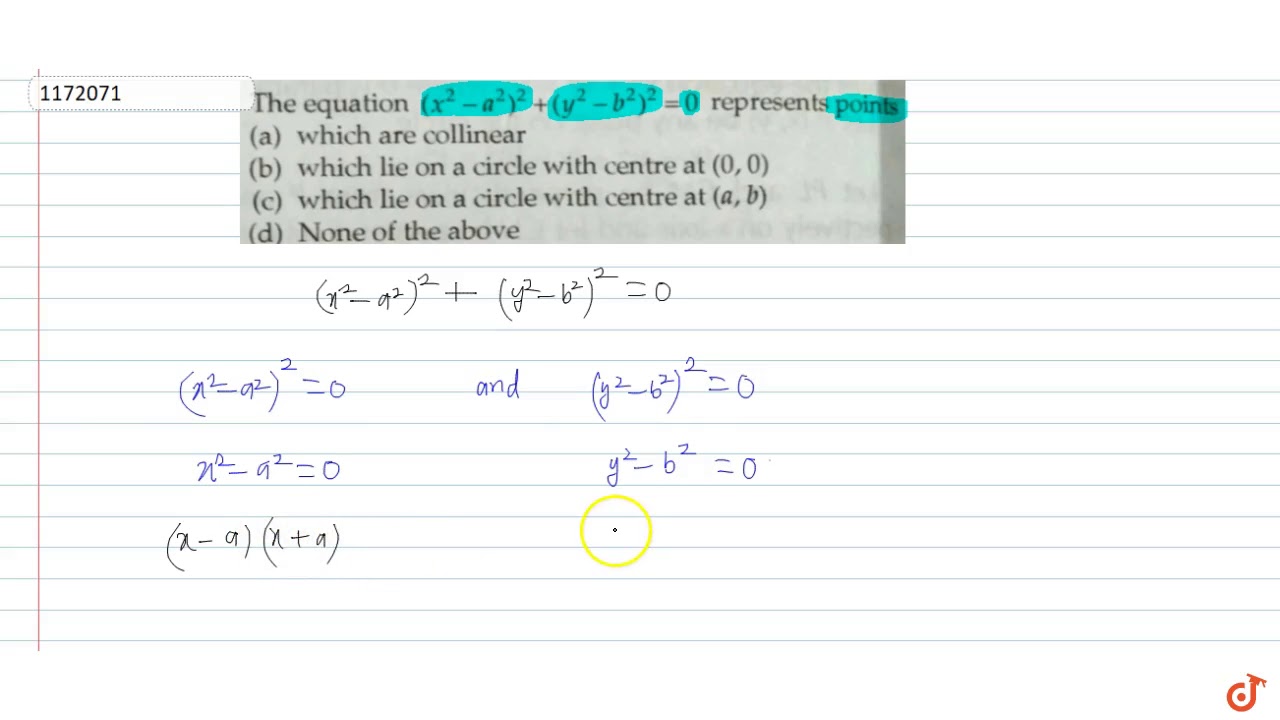 1172071
The equation (x² – a²)² + (y² – b²)² = 0 represents points
(a) which are collinear
(b) which lie on a circle with centre at (0, 0)
(c) which lie on a circle with centre at (a, b)
(d) None of the above
(x² – a²)² + (y² – b²)² = 0
(x² – a²)² = 0 and (y² – b²)² = 0
x² – a² = 0 y² – b² = 0
(x – a) (x + a)